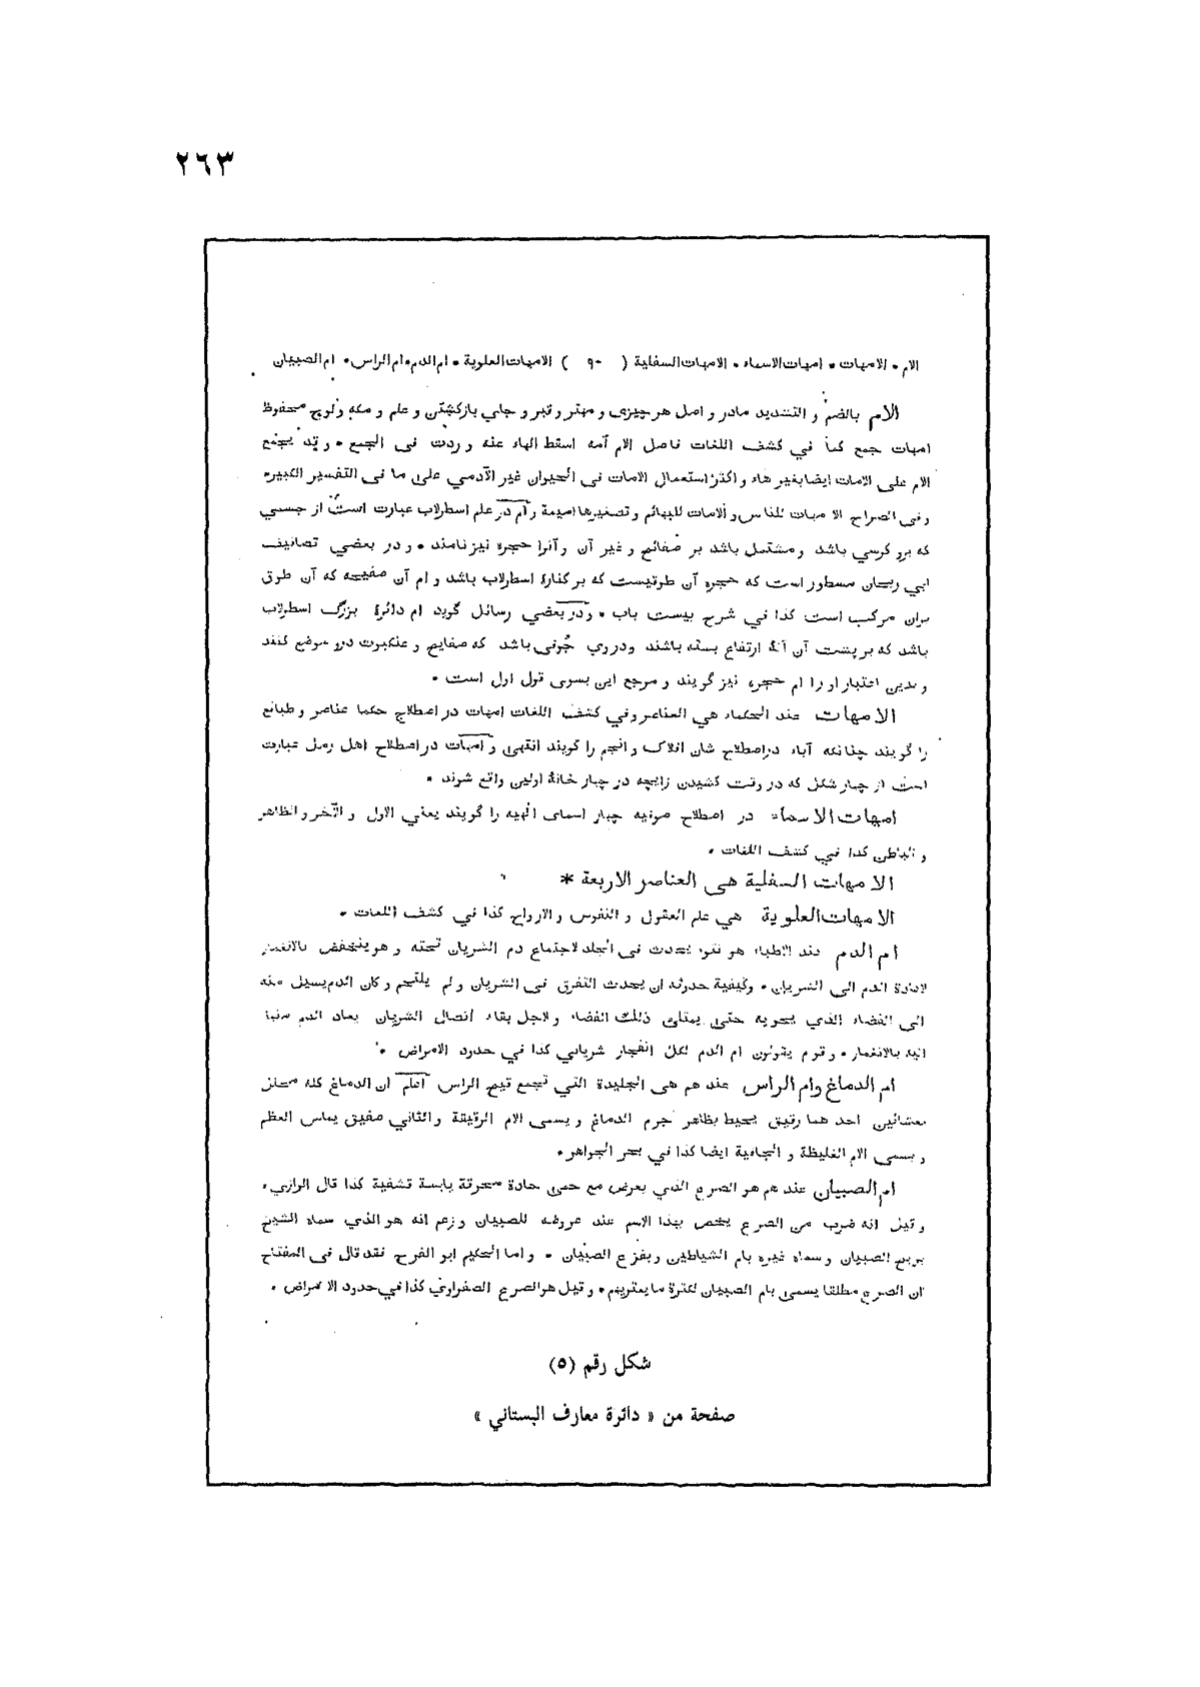 ٢٦٣
الام • الامهات • امهات الاسماء • الامهات السفلية ( ٩٠ ) الامهات العلوية • ام الدم • ام الراس • ام الصبيان
الام بالضم و التشديد مادر و اصل هر چيزى و مهتر و قبر و جاي بازكشتن و علم و مكه و لوح محفوظ
امهات جمع كما في كشف اللغات فاصل الام أمه اسقط الهاء عنه و ردت فى الجمع • و قد يجمع
الام على الامات ايضا بغير هاء و اكثر استعمال الامات فى الحيوان غير الآدمي على ما فى التفسير الكبير •
و فى الصراح الامهات للناس و الامات للبهائم و تصغيرها اميمة و ام در علم اسطرلاب عبارت است از جسمي
كه برو كرسي باشد و مشتمل باشد بر صفائح و غير آن و آنرا حجره نيز نامند • و در بعضي تصانيف
ابي ريحان مسطور است كه حجره آن طوقيست كه بر كنارۀ اسطرلاب باشد و ام آن صفيحه كه آن طوق
بران مركب است كذا في شرح بيست باب • و در بعضي رسائل گويد ام دائرۀ بزرگ اسطرلاب
باشد كه بر پشت آن آلۀ ارتفاع بسته باشند و در روي جُوفى باشد كه صفايح و عنكبوت درو موضع كنند
و بدين اعتبار او را ام حجره نيز گويند و مرجع اين بسوى قول اول است •
الامهات عند الحكماء هي العناصر و في كشف اللغات امهات در اصطلاح حكما عناصر و طبائع
را گويند چنانكه آباء در اصطلاح شان افلاك و انجم را گويند انتهى و امهات در اصطلاح اهل رمل عبارت
است از چهار شكل كه در وقت كشيدن زايچه در چهار خانۀ اولين واقع شوند •
امهات الاسماء در اصطلاح صوفيه چهار اسماى الهيه را گويند يعني الاول و الآخر و الظاهر
و الباطن كذا في كشف اللغات •
الامهات السفلية هى العناصر الاربعة *
الامهات العلوية هي علم العقول و النفوس و الارواح كذا في كشف اللغات •
ام الدم عند الاطباء هو نتوء يحدث فى الجلد لاجتماع دم الشريان تحته و هو ينخفض بالانغمار
لاعادة الدم الى الشريان • وكيفية حدوثه ان يحدث التفرق فى الشريان و لم يلتحم و كان الدم يسيل منه
الى الفضاء الذي يحويه حتى يمتلئ ذلك الفضاء و لاجل بقاء اتصال الشريان يعاد الدم
اليه بالانغمار • و قوم يقولون ام الدم لكل انفجار شرياني كذا في حدود الامراض •
ام الدماغ و ام الراس عند هم هى الجليدة التي تجمع الراس اعلم ان الدماغ كله مجلل
بغشائين احد هما رقيق يحيط بظاهر جرم الدماغ و يسمى الام الرقيقة و الثاني صفيق يماس العظم
و يسمى الام الغليظة و الجافية ايضا كذا في بحر الجواهر •
ام الصبيان عند هم هو الصرع الذي يعرض مع حمى حادة محرقة يابسة تشفية كذا قال الرازي •
و قيل انه ضرب من الصرع يخص بهذا الاسم عند عروضه للصبيان و زعم انه هو الذي سماه الشيخ
بريح الصبيان و سماه غيره بام الشياطين و بفزع الصبيان • و اما الحكيم ابو الفرج فقد قال فى المفتاح
ان الصرع مطلقا يسمى بام الصبيان لكثرة ما يعتريهم • و قيل هو الصرع الصفراوي كذا في حدود الامراض •
شكل رقم (٥)
صفحة من « دائرة معارف البستاني »